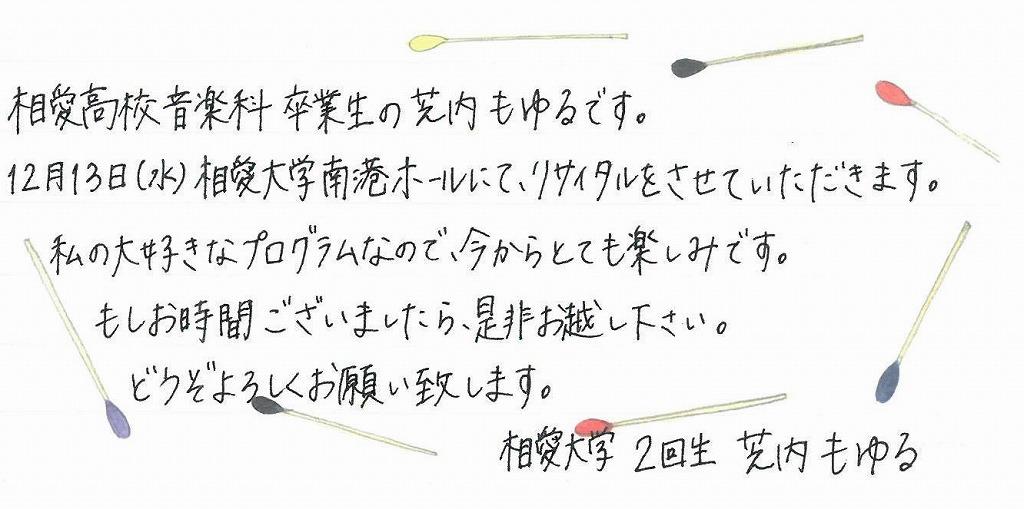 相愛高校音楽科 卒業生の 芝内もゆるです。
12月13日(水) 相愛大学南港ホールにて、リサイタルをさせていただきます。
私の大好きなプログラムなので、今からとても楽しみです。
もしお時間ございましたら、是非お越し下さい。
どうぞよろしくお願い致します。
相愛大学 2回生 芝内もゆる